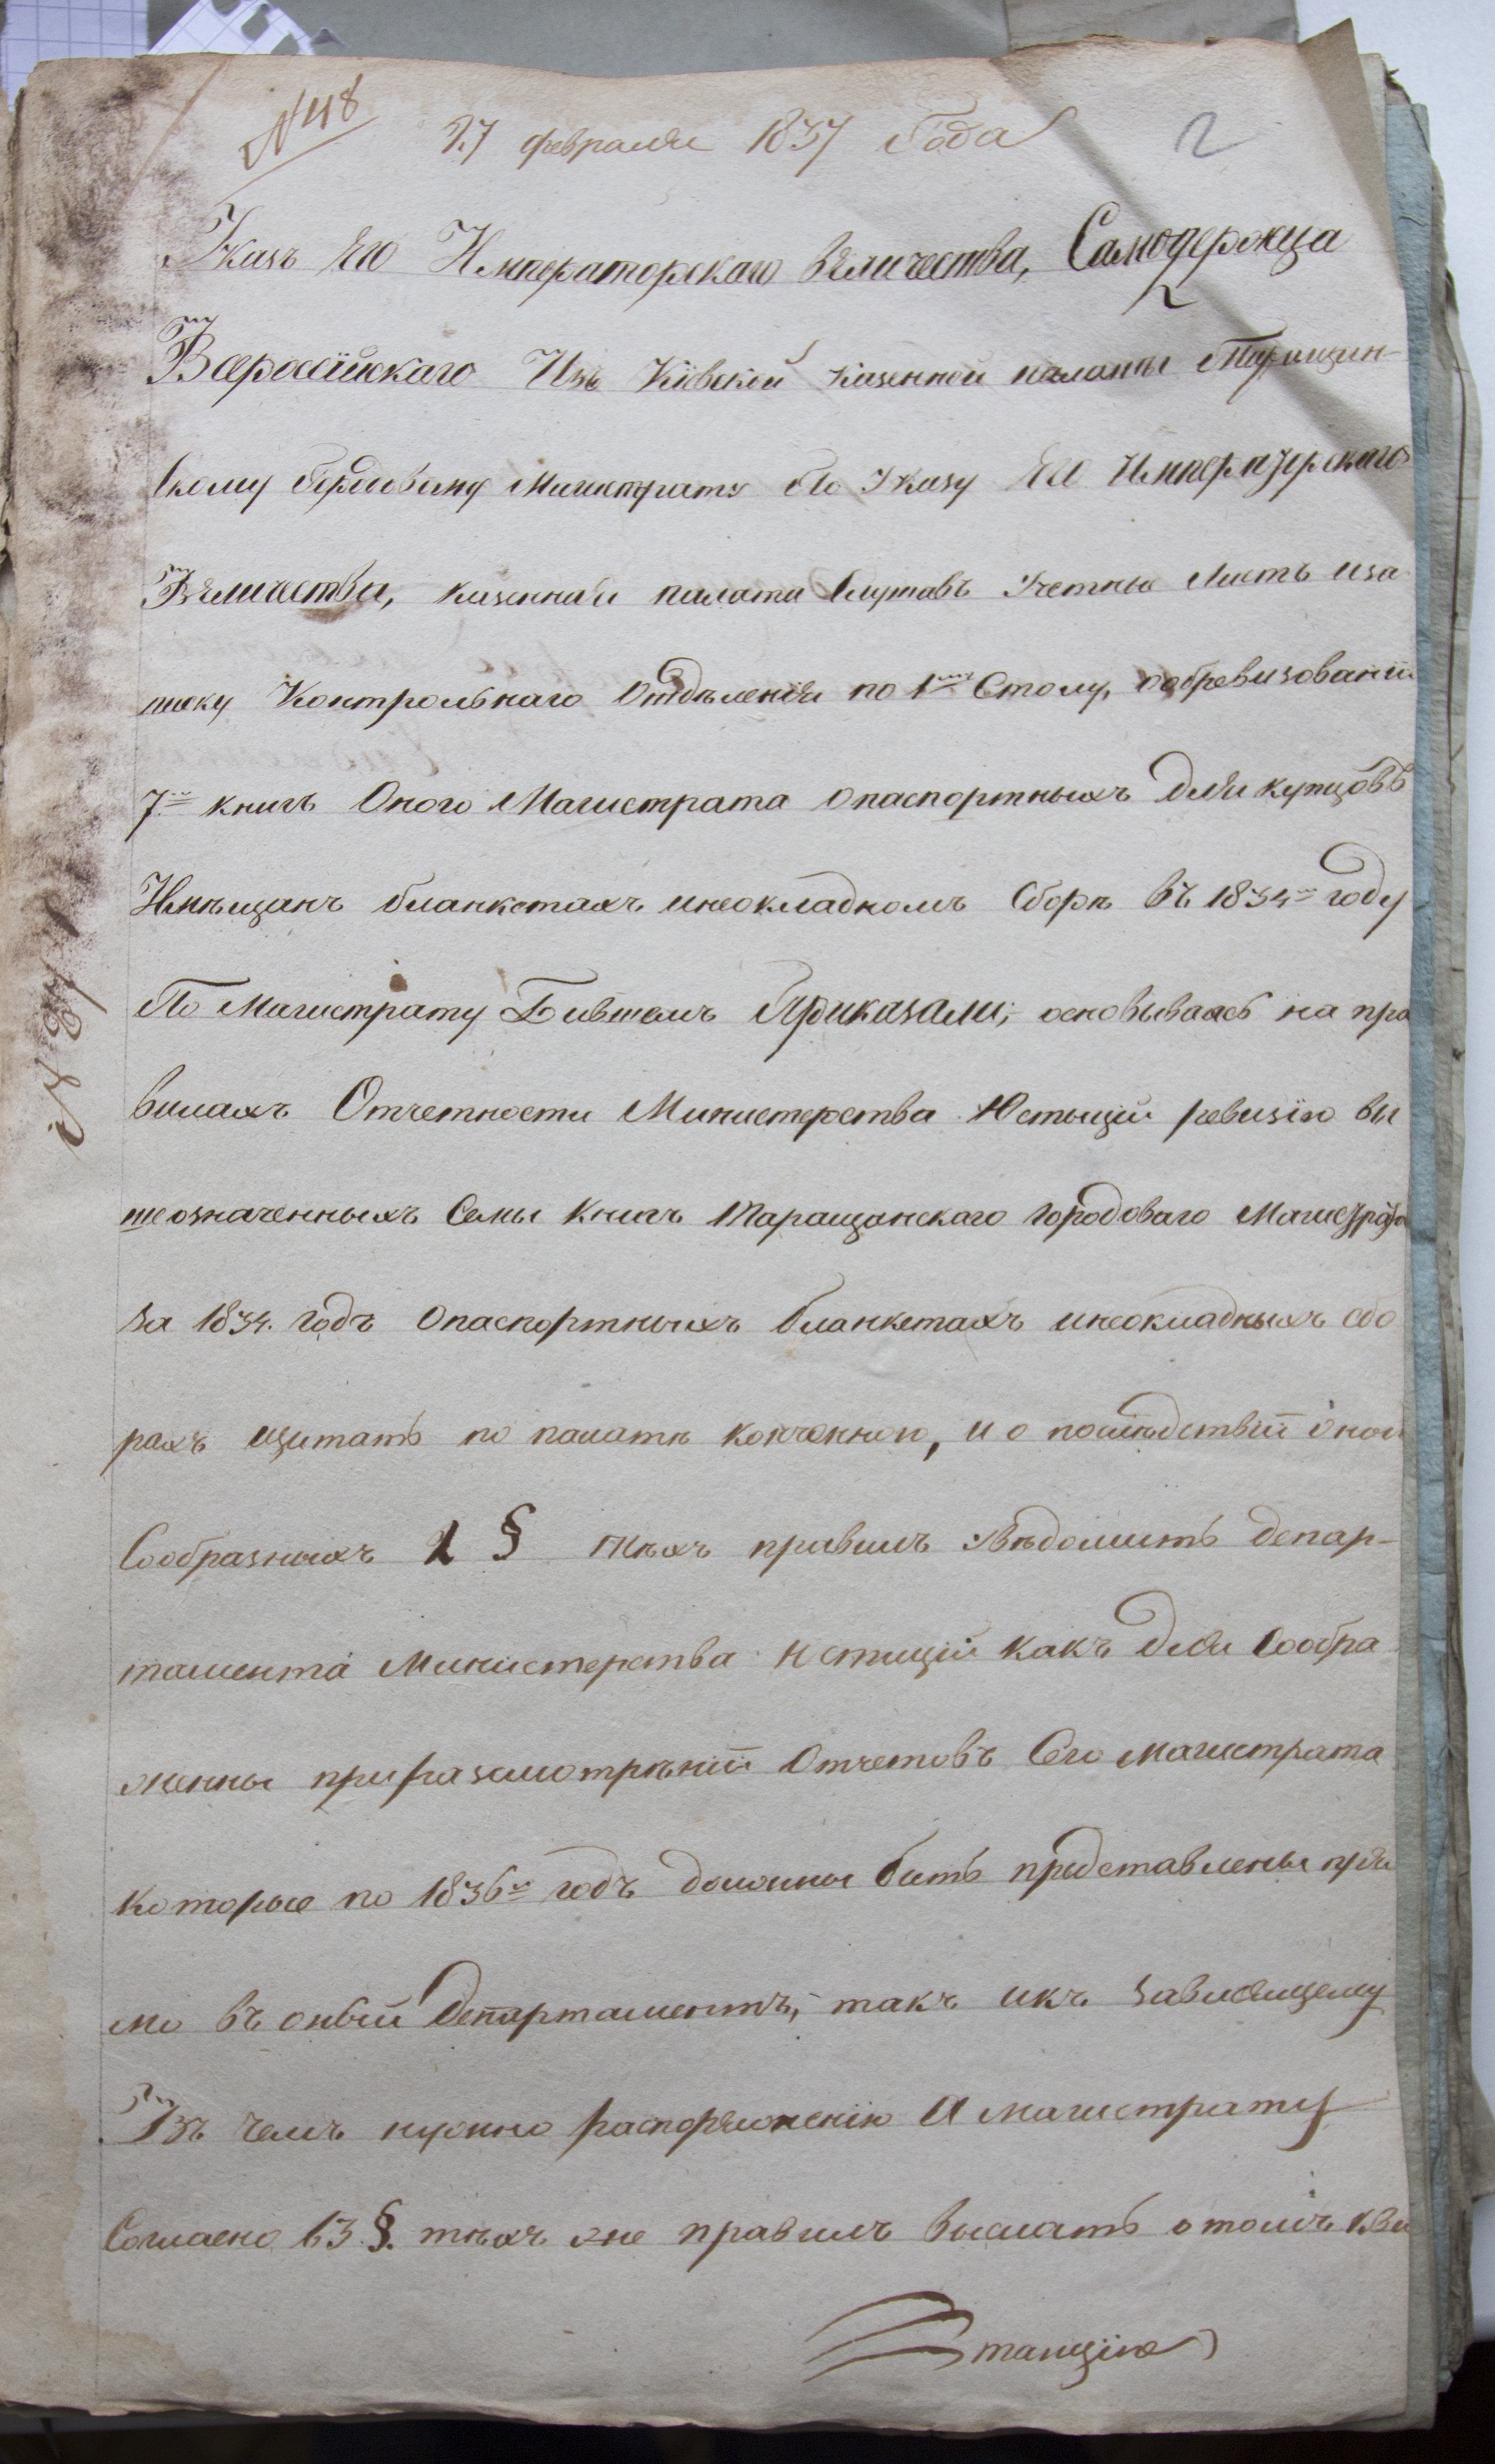 N 48
27 февраля 1837 Года
2
Указъ Его Императорскаго Величества, Самодержца
Всеросійскаго Изъ Кіевской казенной палаты Таращин-
скому Городовому Магистрату По Указу Его Императорскаго
Величества, казенная палата Слушавъ Учетные Листъ иза
писку Контрольнаго Отдѣленія по 1му Столу, обревизованіи
7ми книгъ Оного Магистрата опаспортныхъ для купцовъ
Имѣщанъ бланкетахъ инеокладномъ Сборѣ въ 1834м году
По Магистрату Бившемъ Приказали; основываясь на пра
вилахъ Отчетности Министерства Юстыціи ревизію вы
шеозначенныхъ Семы Книгъ Таращанскаго городоваго Магистрата
за 1834. годъ Опаспортныхъ бланкетахъ инеокладныхъ сбо
рахъ щитать по палатѣ конченною, и о послѣдствіи оной
Сообразныхъ 2 § тѣхъ правилъ Увѣдомить депар-
тамента Министерства Юстиціи какъ для Сообра
жены приразсмотрѣніи Отчетовъ Сего Магистрата
которые по 1836й годъ должны бить представлены пря
мо въ оный Департаментъ, такъ икъ Зависящему
Въ чемъ нужно распоряженію А магистрату
Согласно 63 §. тѣхъ же правилъ выслать отомъ кви
танцію
N 37